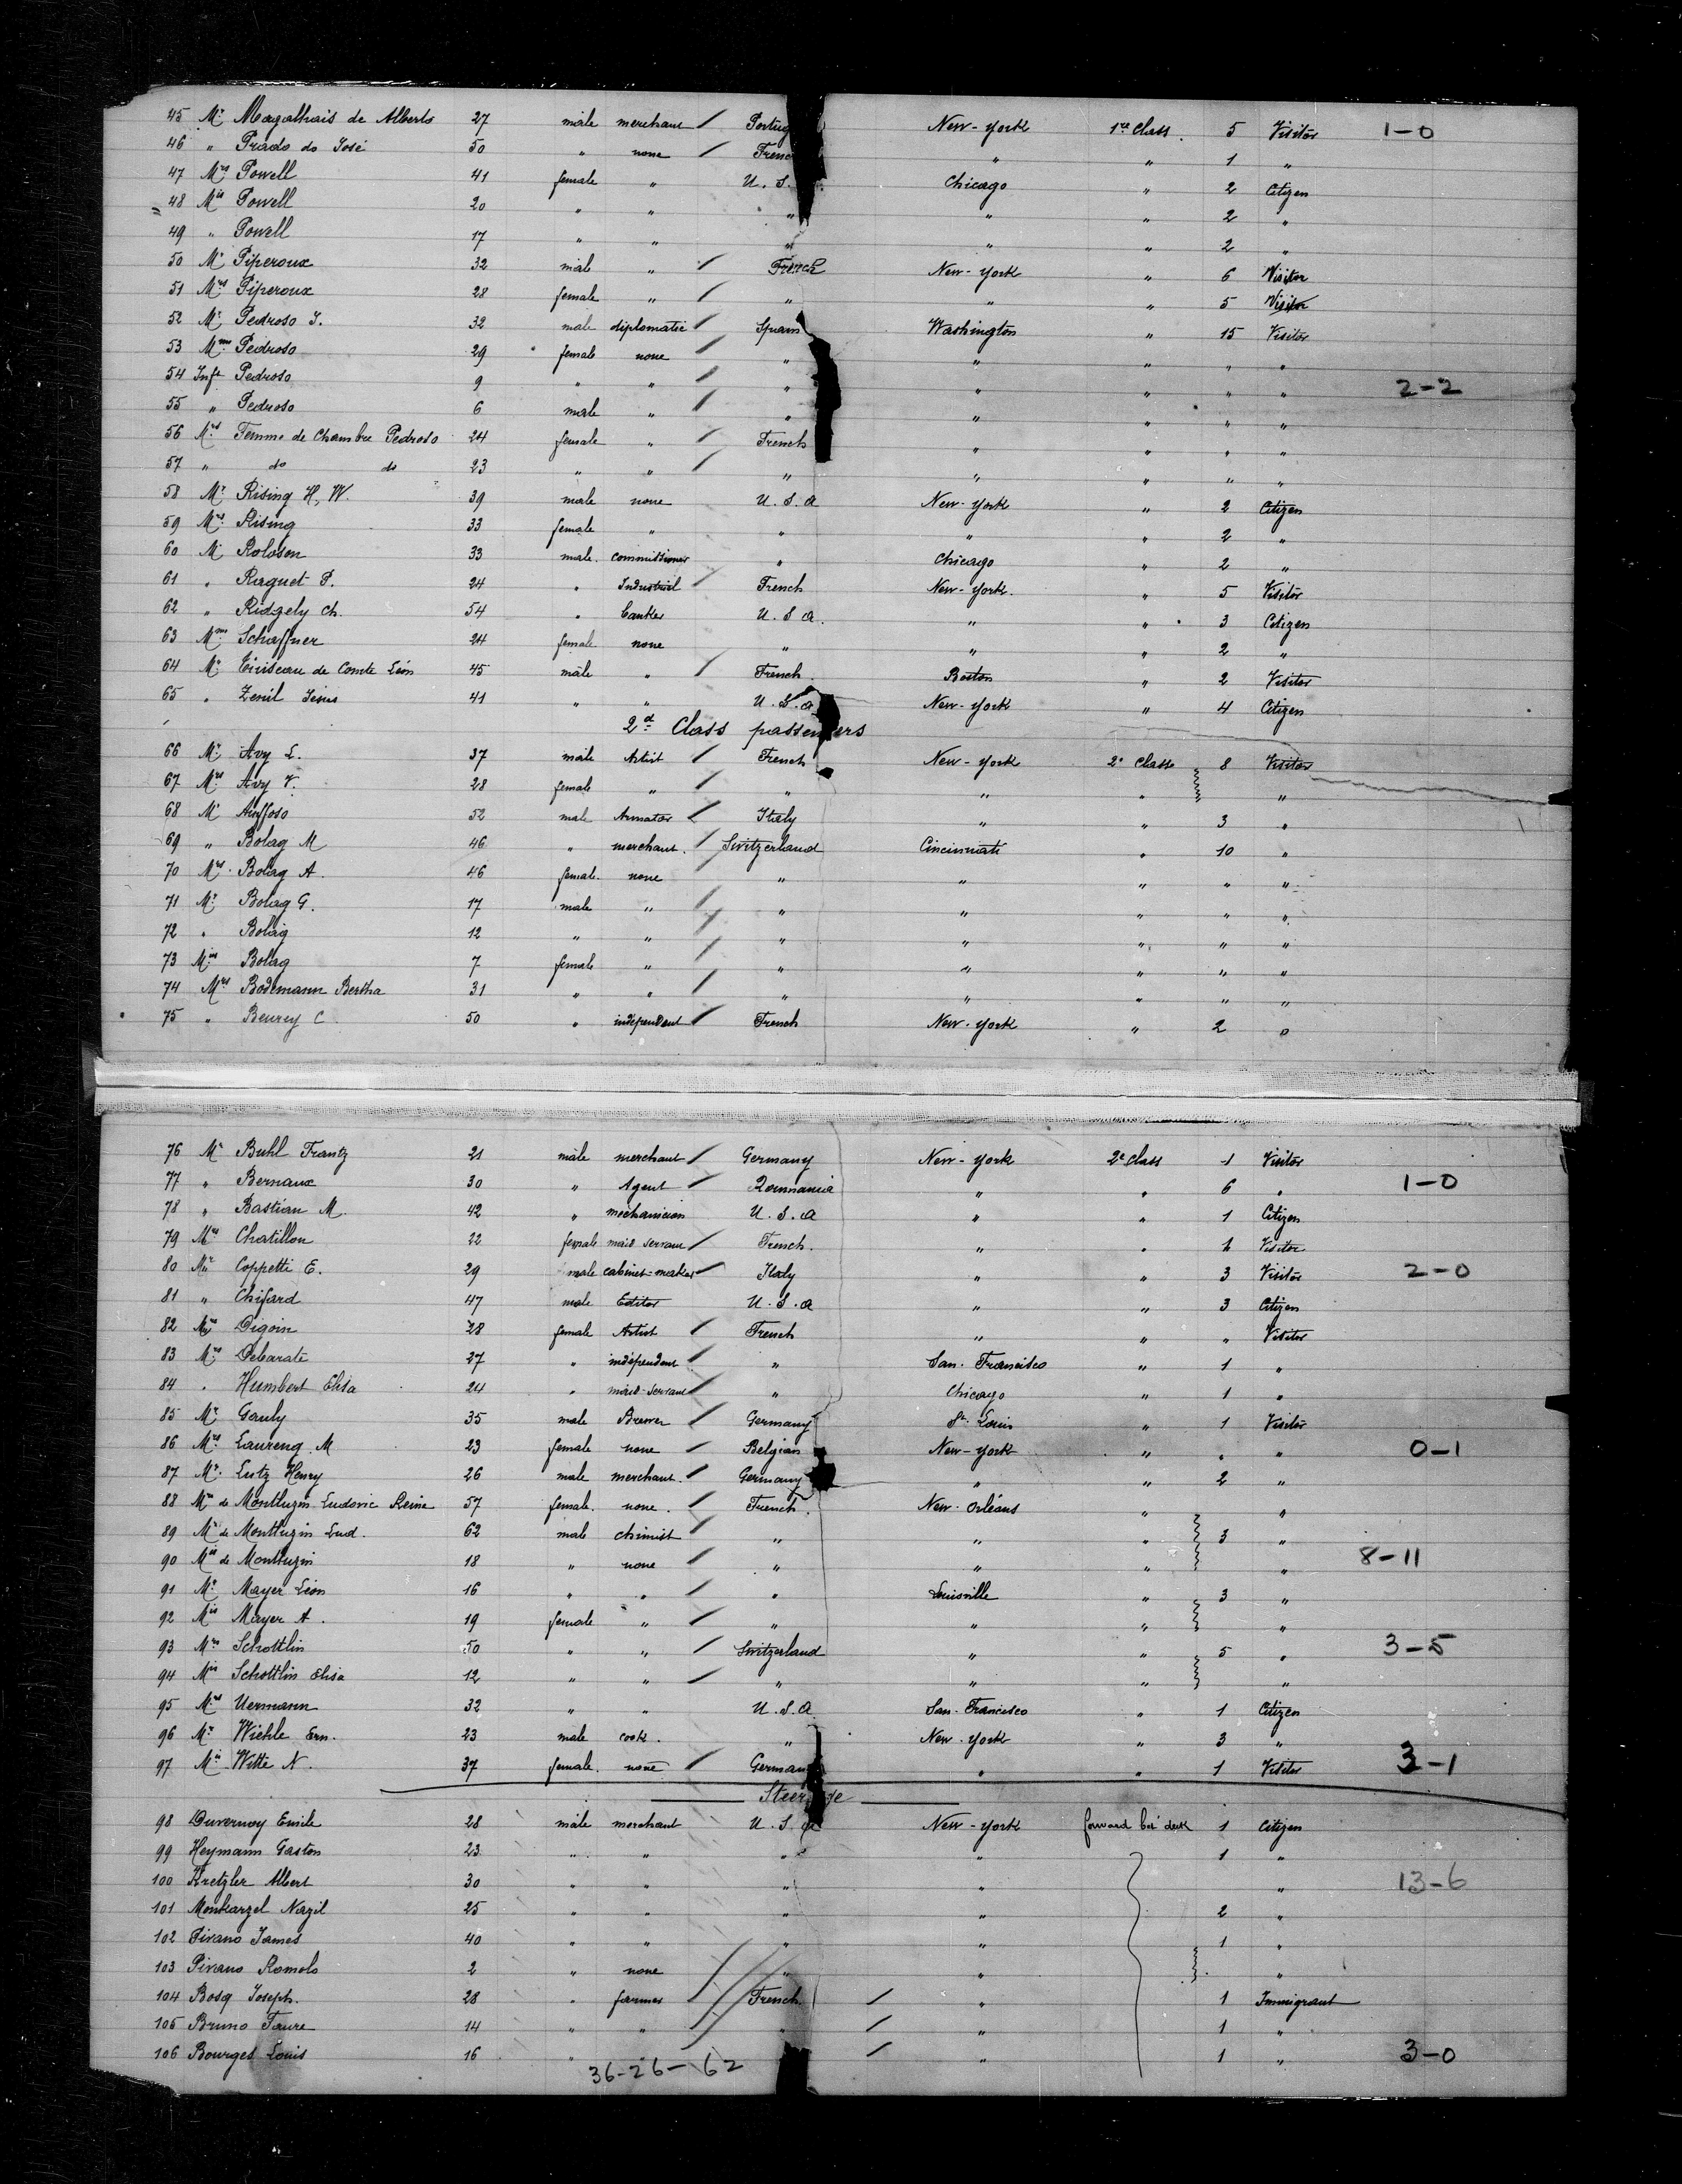 45 Mr Magalhais de Alberto 27 male merchant / Portug New-York 1re Class 5 Visitor 1-0
46 " Prado do José 50 " none / Frenc " " 1 "
47 Mrs Powell 41 female " U. S. Chicago " 2 Citizen
48 Mis Powell 20 " " " " " 2 "
49 " Powell 17 " " " " " 2 "
50 Mr Piperoux 32 male " / French New-York " 6 Visitor
51 Mrs Piperoux 28 female " / " " " 5 Visitor
52 Mr Pedroso J. 32 male diplomatic / Spain Washington " 15 Visitor
53 Mme Pedroso 29 female none / " " " " "
54 Inft Pedroso 9 " " / " " " " " 2-2
55 " Pedroso 6 male " / " " " " "
56 Mrs Femme de Chambre Pedroso 24 female " / French " " " "
57 " do do 23 " " / " " " " "
58 Mr Rising H, W. 39 male none U. S. a New-York " 2 Citizen
59 Mrs Rising 33 female " " " " 2 "
60 Mr Roloson 33 male. commissioner " Chicago " 2 "
61 " Raguet P. 24 " Industriel / French New-York. " 5 Visitor
62 " Ridgely Ch. 54 " banker U. S a. " " 3 Citizen
63 Mme Schaffner 24 female none " " " 2 "
64 Mr de Comte Léon 45 male " / French Boston " 2 Visitor
65 " Zenil Jesus 41 " " U. S. a New-York " 4 Citizen
2d Class passengers
66 Mr Avy L. 37 male Artist / French New-York 2e Classe 8 Visitor
67 Mrs Avy V. 28 female " / " " " "
68 Mr 52 male Armator / Italy " " 3 "
69 " Bolag M 46 " merchant. / Switzerland Cincinnati " 10 "
70 Mrs Bolag A. 46 female none " " " " "
71 Mr Bolag G. 17 male " / " " " " "
72 " Bolag 12 " " / " " " " "
73 Mis Bolag 7 female " / " " " " "
74 Mrs Bodemann Bertha 31 " " / " " " " "
75 " Beurey C 50 " indépendent / French New-York " 2 "
76 Mr Buhl Frantz 21 male merchant / Germany New-York 2e Class 1 Visitor
77 " Bernaux 30 " Agent / Roumania " " 6 " 1-0
78 " Bastian M. 42 " mechanician U. S. a " " 1 Citizen
79 Mrs Chatillon 22 female maid servant / French. " " 1 Visitor
80 Mr Coppetti E. 29 male cabinet-maker / Italy " " 3 Visitor 2-0
81 " Chifard 47 male Editor U. S. a " " 3 Citizen
82 Digoin 28 female Artist / French " " " Visitor
83 Mrs Debarate 27 " indépendent / " San. Francisco " 1 "
84 " Humbert Elisa 24 " maid-servant / " Chicago " 1 "
85 Mr Gauly 35 male Brewer / Germany St. Louis " 1 Visitor
86 Mrs Laureng M 23 female none / Belgian New-York " " " 0-1
87 Mr. Lutz Henry 26 male merchant. / Germany " " 2 "
88 Mrs de Montluzin Ludovic Reine 57 female. none. / French. New-Orléans " "
89 Mr de Montluzin Lud. 62 male chimist / " " " 3 "
90 Mis de Montluzin 18 " none / " " " " 8-11
91 Mr Mayer Léon 16 " " / " Louisville " 3 "
92 Mis Mayer A. 19 female " / " " " "
93 Mrs Schottlin 50 " " / Switzerland " " 5 " 3-5
94 Mis Schottlin Elisa 12 " " / " " " "
95 Mrs Uermann 32 " " U. S. a San-Francisco " 1 Citizen
96 Mr Wiehle Ern. 23 male cook. " New-York " 3 "
97 Mis Witte N. 37 female. none / German " " 1 Visitor 3-1
Steerage
98 Duvernoy Emile 28 male merchant U. S. a New-York forward bet deck 1 Citizen
99 Heymann Gaston 23 " " " " 1 "
100 Kretzler Albert 30 " " " " " 13-6
101 Monkarzel Nazil 25 " " " " 2 "
102 Pivano James 40 " " " " 1 "
103 Pivano Romolo 2 " none " " "
104 Bosq Joseph. 28 " farmer / French / " 1 Immigrant
105 Bruno Faure 14 " " " / " 1 "
106 Bourges Louis 16 " " / " 1 " 3-0
36-26-62